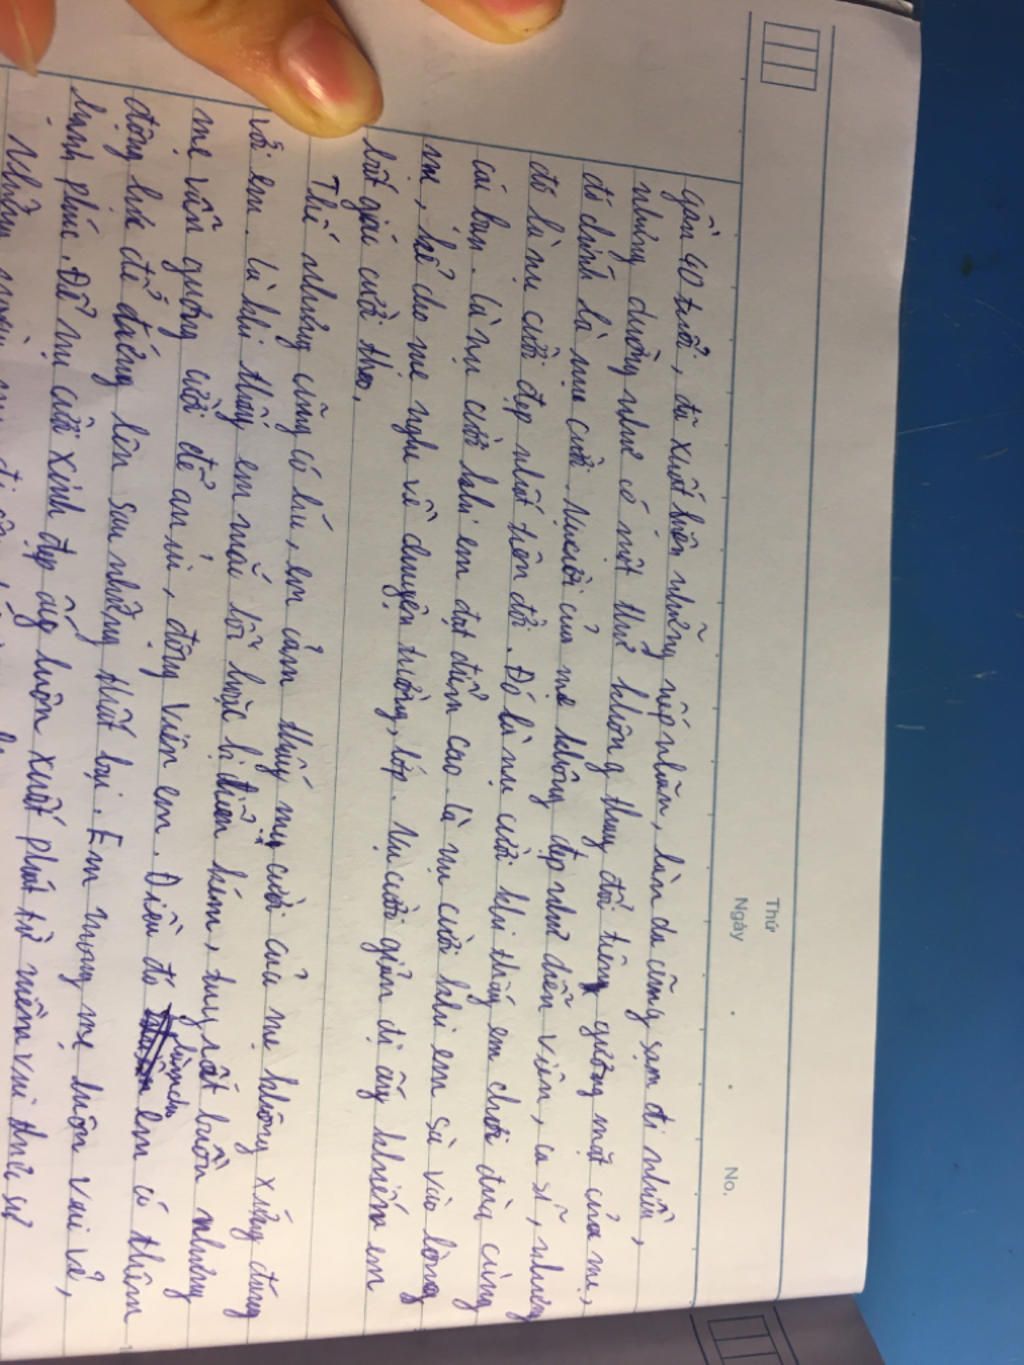 Thứ
Ngày
No.
gần 40 tuổi, đã xuất hiện những nếp nhăn, làn da cũng sạm đi nhiều,
nhưng dường như có một thứ không thay đổi trên gương mặt của mẹ,
đó chính là nụ cười. Nụ cười của mẹ không đẹp như diễn viên, ca sĩ, nhưng
đó là nụ cười đẹp nhất trên đời. Đó là nụ cười khi thấy em chơi đùa cùng
các bạn. Là nụ cười khi em đạt điểm cao. là nụ cười khi em sà vào lòng
mẹ, kể cho mẹ nghe về chuyện trường, lớp. Nụ cười giản dị ấy khiến em
bất giác cười theo.
Thế nhưng cũng có lúc, em cảm thấy nụ cười của mẹ không xứng đáng
với em. Là khi thấy em mắc lỗi hoặc bị điểm kém, tuy rất buồn nhưng
mẹ vẫn gượng cười để an ủi, động viên em. Điều đó làm cho em có thêm
động lực để đứng lên sau những thất bại. Em mong mẹ luôn vui vẻ,
hạnh phúc. Để nụ cười xinh đẹp ấy luôn xuất phát từ niềm vui thực sự
Những